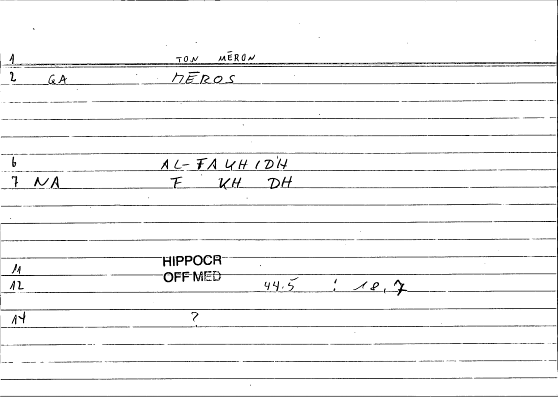 1 TON MĒRON
2 GA MĒROS
6 AL-FAKHIDH
7 NA F KH DH
11 HIPPOCR
12 OFF MED 44.5 : 18,7
14 ?